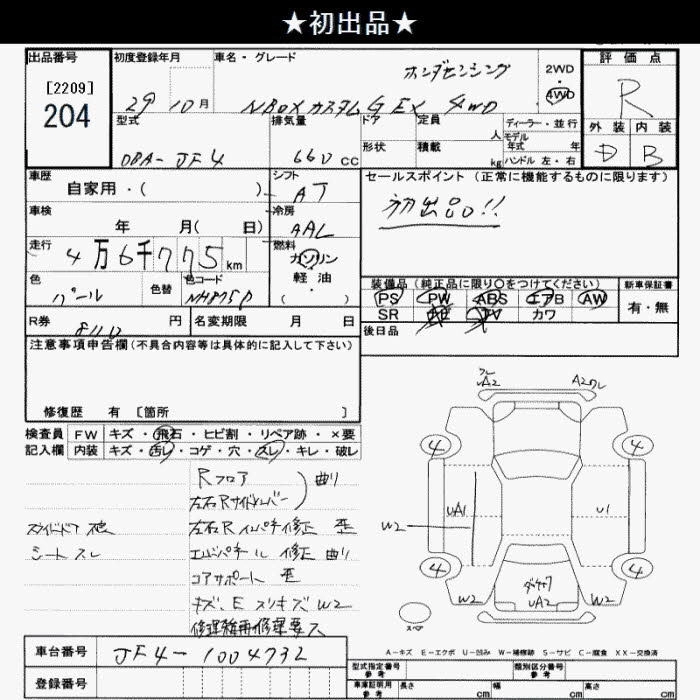 ★初出品★
出品番号
[2209]
204
初度登録年月
29 10月
車名・グレード
ホンダセンシング
NBOXカスタムG EX 4WD
2WD
4WD
評価点
R
外装 内装
D B
型式
DBA-JF4
排気量
660 CC
ドア
形状
定員
人
積載
kg
ディーラー・並行
モデル
年式 年
ハンドル 左・右
車歴
自家用・( )
シフト
AT
セールスポイント (正常に機能するものに限ります)
初出品!!
車検
年 月( 日)
冷房
AAC
走行
4万6千775km
燃料
ガソリン
軽油・
( )
色
パール
色替
色コード
NH875P
装備品 (純正品に限り○をつけてください)
PS PW ABS エアB AW
SR TV カワ
新車保証書
有・無
R券
円
名変期限 月 日
後日品
注意事項申告欄(不具合内容等は具体的に記入して下さい)
修復歴 有 [箇所 ]
検査員 FW キズ・飛石・ヒビ割・リペア跡・×要
記入欄 内装 キズ・汚レ・コゲ・穴・スレ・キレ・破レ
Rフロア
曲り
左右Rサイドメンバー
左右Rインパネ修正 歪
シートスレ
エンドパネル 修正 曲り
コアサポート 歪
キズ、E スリキズ W2
A2 A2
4 4
UA1 U1
W2
4 4
W2 UA2 W2
スペア
A-キズ E-エクボ U-凹み W-補修跡 S-サビ C-腐食 XX-交換済
車台番号 JF4-1004732
登録番号
型式指定番号
参考
類別区分番号
参考
車庫証明用
参考
長さ cm 幅 cm 高さ cm